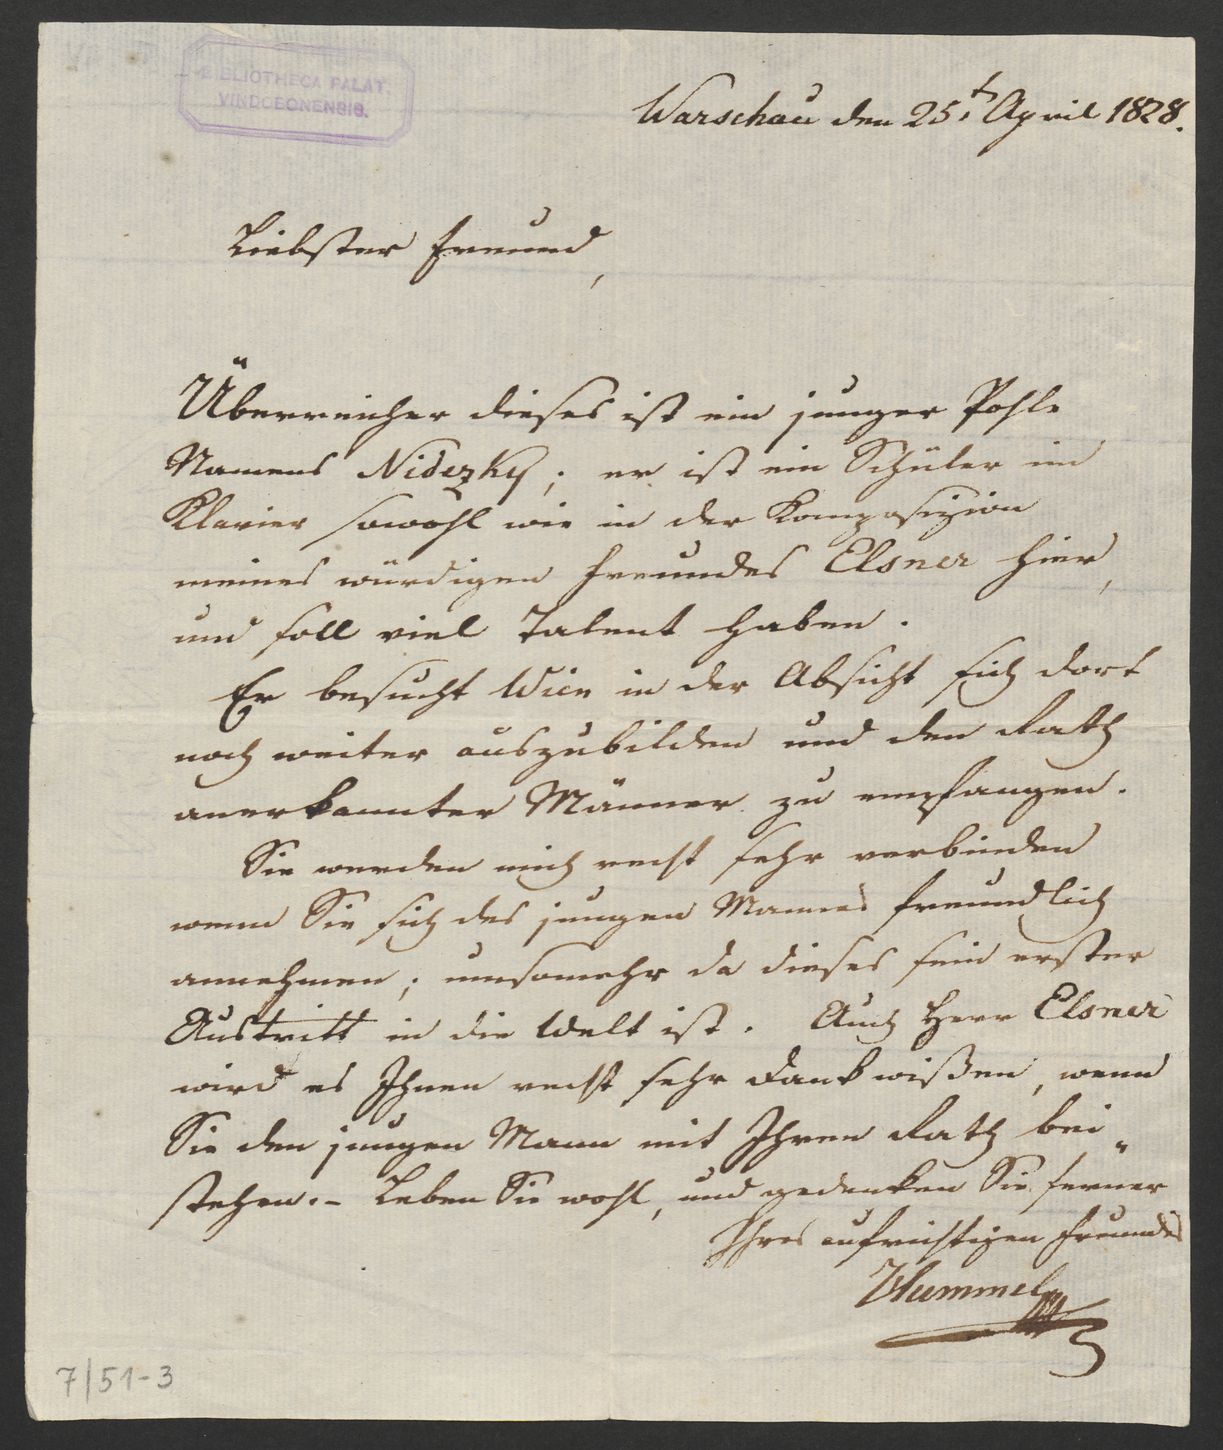 BIBLIOTHECA PALAT.
VINDOBONENSIS.
Warschau den 25t April 1828.
Liebster Freund,
Überreicher dieses ist ein junger Pohle
Namens Nidezky; er ist ein Schüler im
Klavier sowohl wie in der Komposizion
meines würdigen Freundes Elsner hier,
und soll viel Talent haben.
Er besucht Wien in der Absicht sich dort
noch weiter auszubilden und den Rath
anerkannter Männer zu empfangen.
Sie werden mich recht sehr verbinden
wenn Sie sich des jungen Mannes freundlich
annehmen; umsomehr da dieses sein erster
Austritt in die Welt ist. Auch Herr Elsner
wird es Ihnen recht sehr Dank wißen, wenn
Sie den jungen Mann mit Ihren Rath bei„
stehen. – Leben Sie wohl, und gedenken Sie ferner
Ihres aufrichtigen Freundes
JHummel
7/51-3